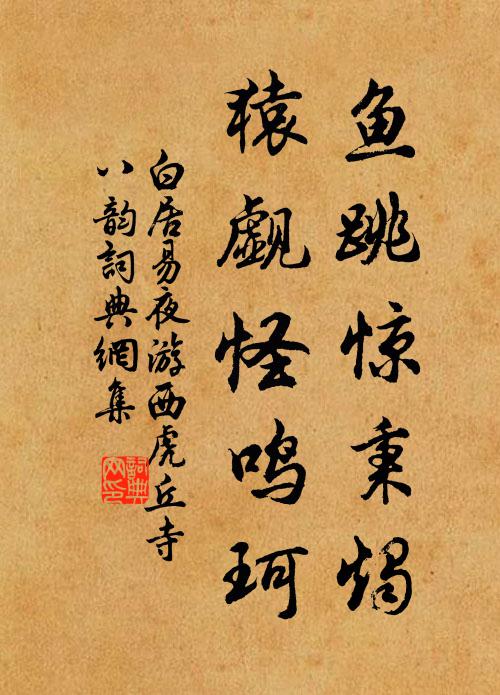 鱼跳惊秉烛
猿觑怪鸣珂
白居易夜游西虎丘寺
八韵詞典網集
詞典
网印